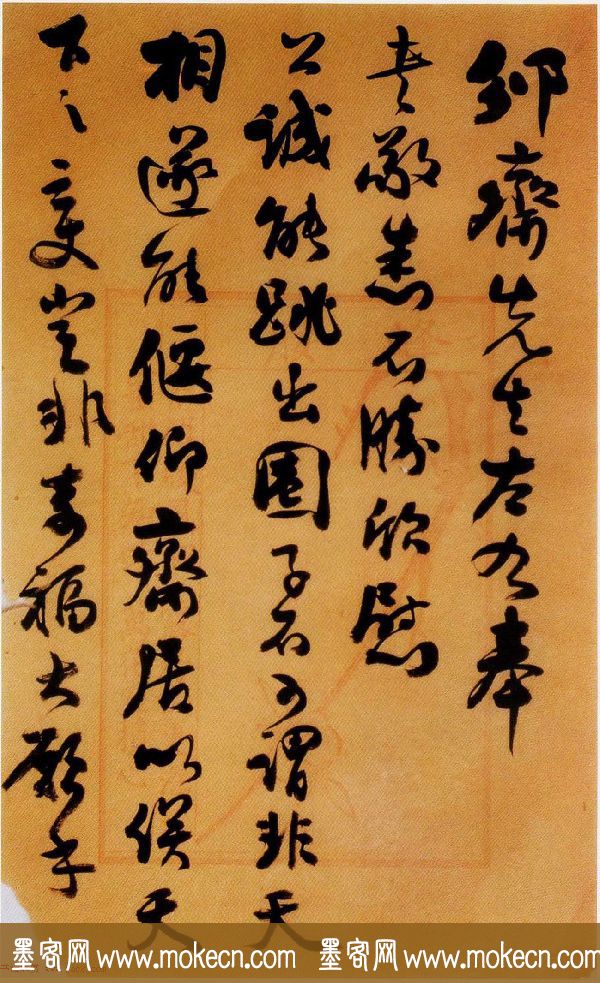 齋先生左右奉
書敬悉不勝欣慰
公誠能跳出圈子不可謂非天
相遂能偃仰齋居以俟天
下之變豈非奇福大願乎
墨客网 www.mokecn.com 墨客网 www.mokecn.com